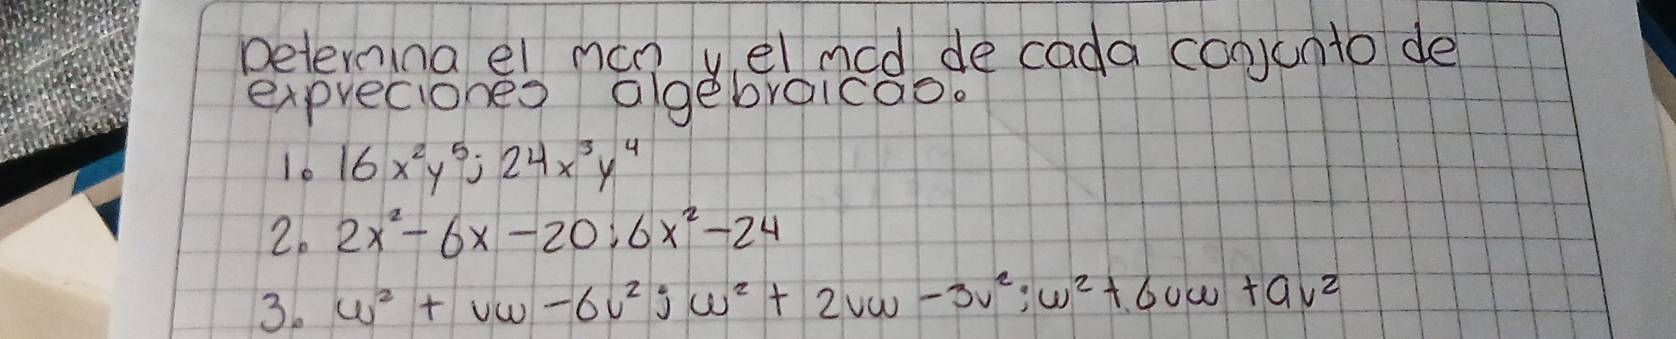 Determina el mcm y el mcd de cada conjunto de
expreciones algebraicas.
1. 16x²y⁵; 24x³y⁴
2. 2x²-6x-20; 6x²-24
3. w² + vw -6v²; w² + 2vw -3v²; w² + 6vw + 9v²